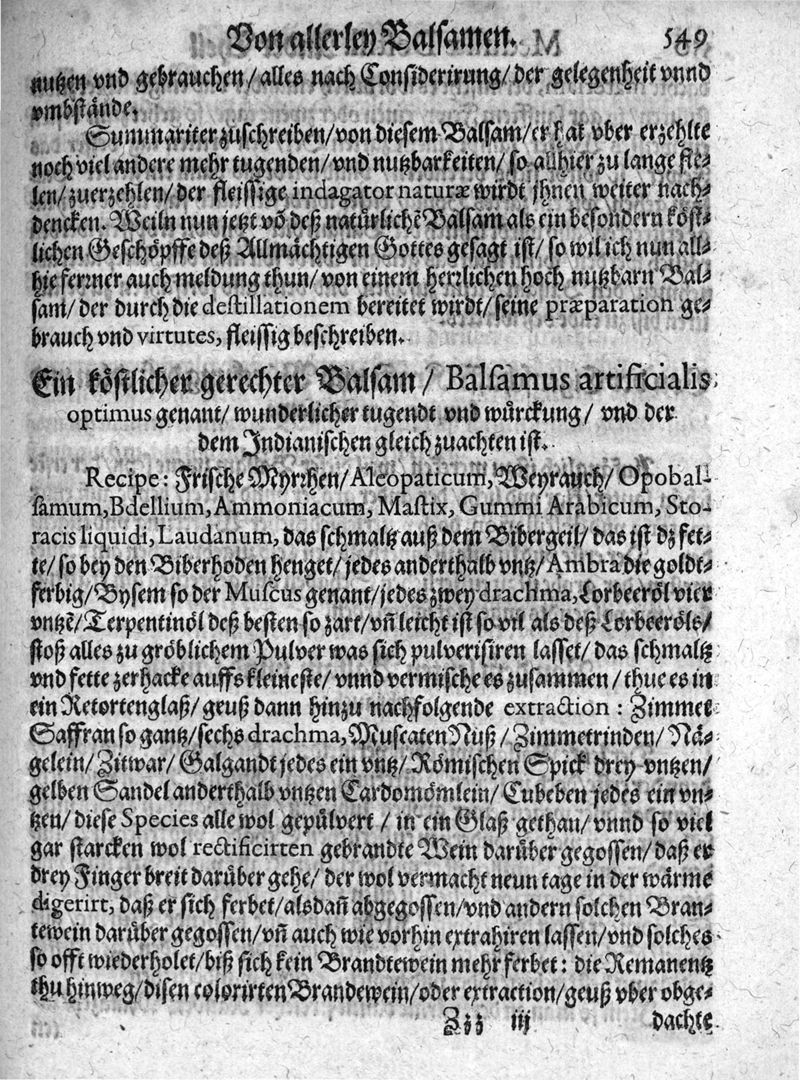 Von allerley Balsamen. 549
nutzen vnd gebrauchen/alles nach Considerirung/der gelegenheit vnnd
vmbstände.
Summariter zuschreiben/von diesem Balsam/er hat vber erzehlte
noch viel andere mehr tugenden/vnd nutzbarkeiten/so allhier zu lange fie-
len/zuerzehlen/der fleissige indagator naturæ wirdt jhnen weiter nach-
dencken. Weiln nun jetzt võ deß natürlichẽ Balsam als ein besondern köst-
lichen Geschöpffe deß Allmächtigen Gottes gesagt ist/so wil ich nun all-
hie ferrner auch meldung thun/von einem herrlichen hoch nutzbarn Bal-
sam/der durch die destillationem bereitet wirdt/seine præparation ge-
brauch vnd virtutes, fleissig beschreiben.
Ein köstlicher gerechter Balsam/ Balsamus artificialis
optimus genant/wunderlicher tugendt vnd würckung/ vnd der
dem Indianischen gleich zuachten ist.
Recipe: Frische Myrrhen/Aleopaticum, Weyrauch/Opobal-
samum, Bdellium, Ammoniacum, Mastix, Gummi Arabicum, Sto-
racis liquidi, Laudanum, das schmaltz auß dem Bibergeil/das ist dz fet-
te/so bey den Biberhoden henget/jedes anderthalb vntz/Ambra die goldt-
ferbig/Bysem so der Muscus genant/jedes zwey drachma, Lorbeeröl vier
vntzẽ/Terpentinöl deß besten so zart/vñ leicht ist so vil als deß Lorbeeröls/
stoß alles zu gröblichem Pulver was sich pulverisiren lasset/das schmaltz
vnd fette zerhacke auffs kleineste/vnnd vermische es zusammen/thue es in
ein Retortenglaß/geuß dann hinzu nachfolgende extraction: Zimmet
Saffran so gantz/sechs drachma, Muscaten Nuß/Zimmetrinden/Nä-
gelein/Zitwar/Galgandt jedes ein vntz/Römischen Spick drey vntzen/
gelben Sandel anderthalb vntzen Cardomömlein/Cubeben jedes ein vn-
tzen/diese Species alle wol gepülvert/in ein Glaß gethan/vnnd so viel
gar starcken wol rectificirten gebrandte Wein darüber gegossen/daß er
drey Finger breit darüber gehe/der wol vermacht neun tage in der wärme
digerirt, daß er sich ferbet/alsdañ abgegossen/vnd andern solchen Bran-
tewein darüber gegossen/vñ auch wie vorhin extrahiren lassen/vnd solches
so offt wiederholet/biß sich kein Brandtewein mehr ferbet: die Remanentz
thu hinweg/disen colorirten Brandewein/oder extraction/geuß vber obge-
Zzz iij dachte